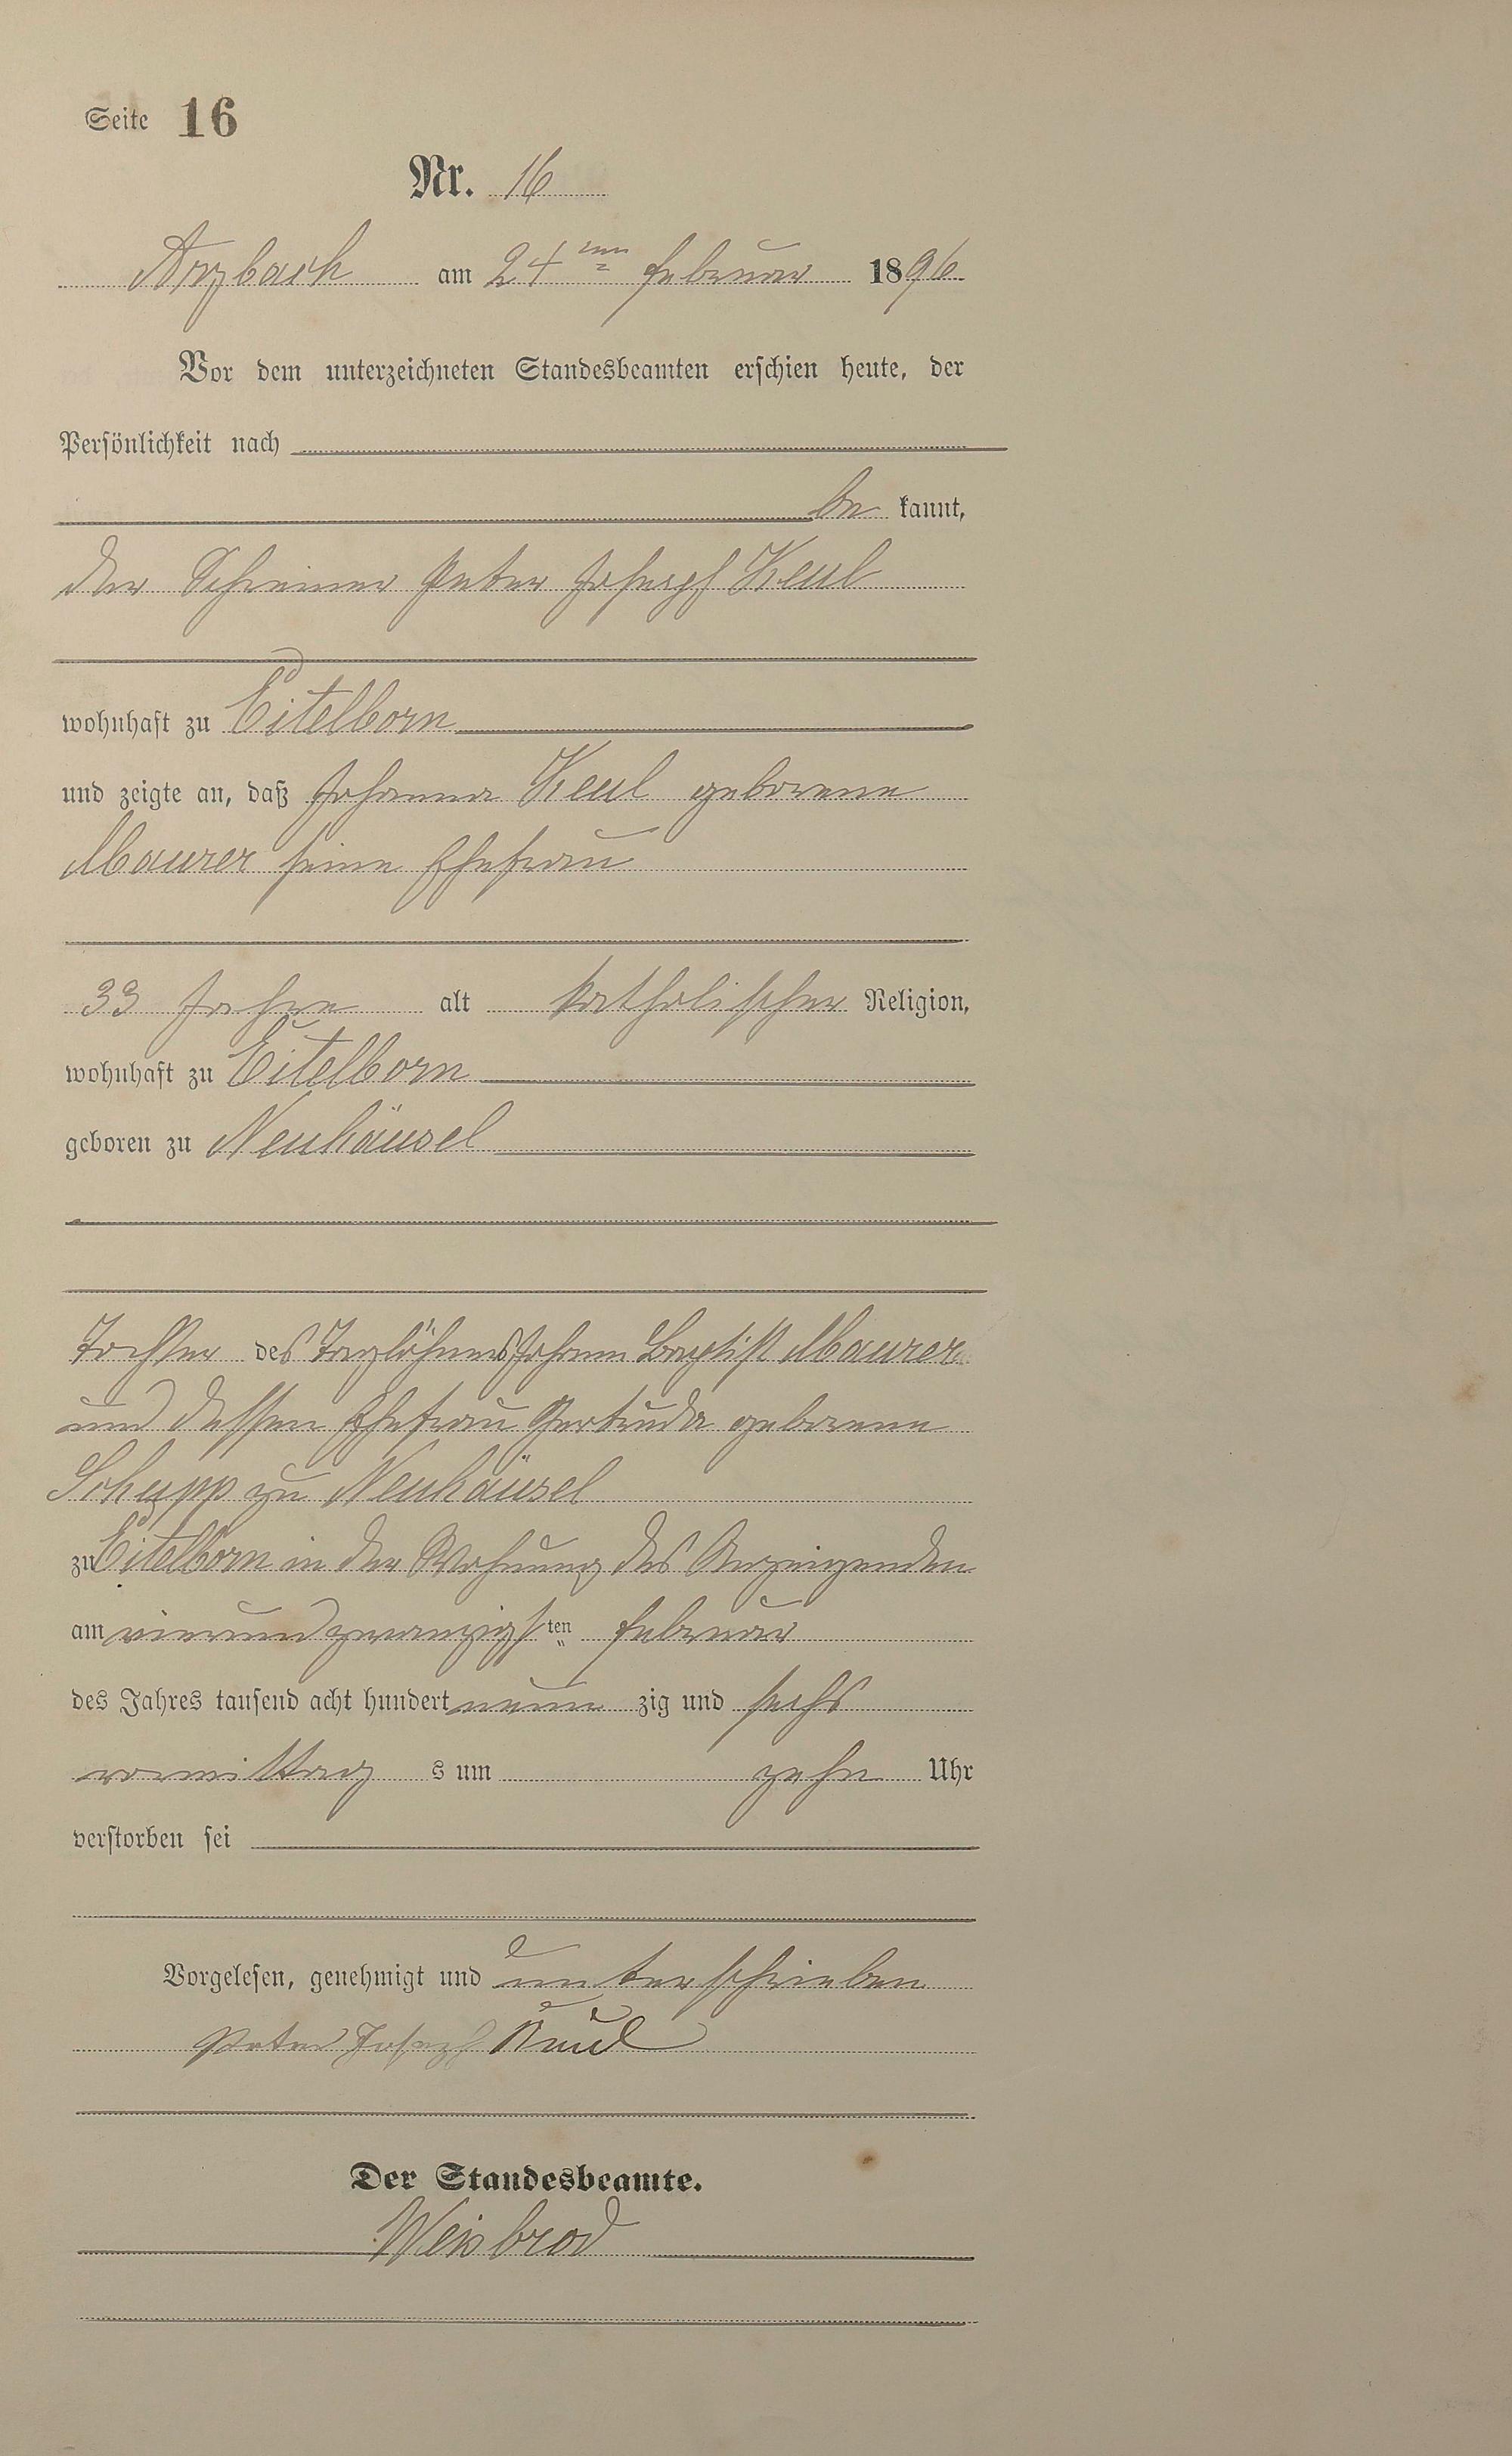 Seite 16
Nr. 16
Arzbach am 24ten Februar 1896
Vor dem unterzeichneten Standesbeamten erschien heute, der
Persönlichkeit nach
be kannt,
der Schreiner Peter Joseph Keul
wohnhaft zu Eitelborn
und zeigte an, daß Johanna Keul geborene
Maurer seine Ehefrau
33 Jahre alt katholischer Religion,
wohnhaft zu Eitelborn
geboren zu Neuhäusel
Tochter des Taglöhners Johann Baptist Maurer
und dessen Ehefrau Gertruda geborene
Schupp zu Neuhäusel
zu Eitelborn in der Wohnung des Anzeigenden
am vierundzwanzigsten Februar
des Jahres tausend acht hundert neun zig und sechs
vormittag s um zehn Uhr
verstorben sei
Vorgelesen, genehmigt und unterschrieben
Peter Joseph Keul
Der Standesbeamte.
Weisbrod